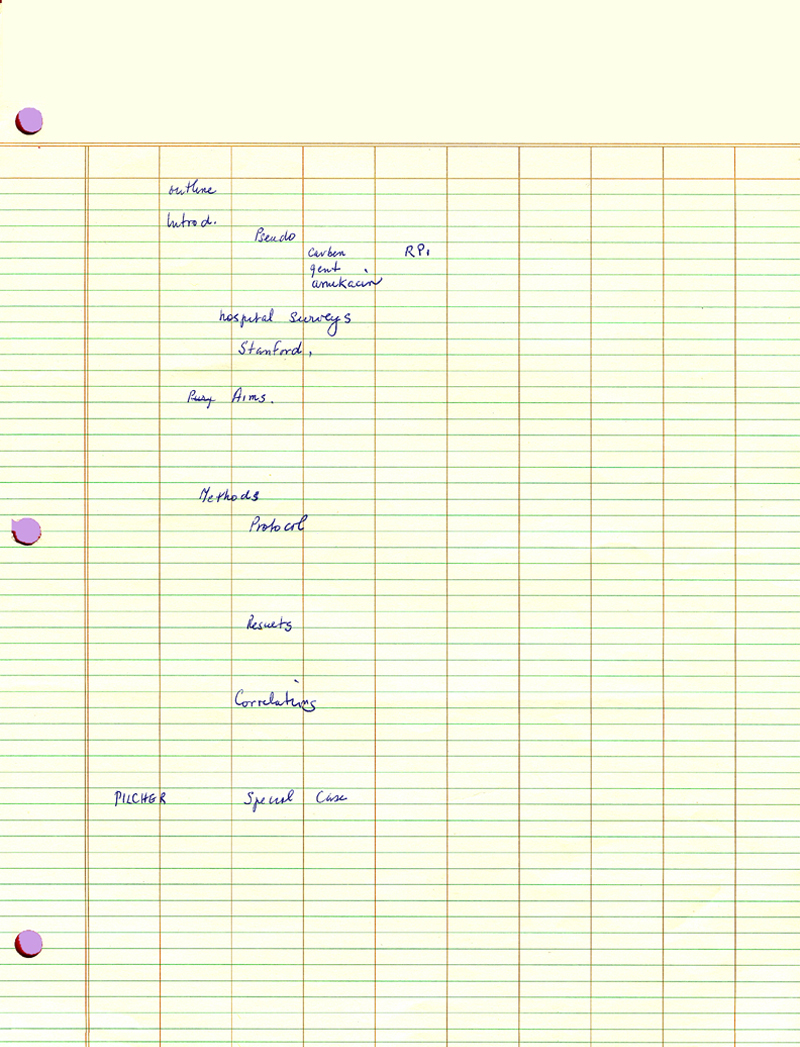 outline
Introd.
Pseudo
Carben RPi
gent
amikacin
hospital Surveys
Stanford,
Aims.
Methods
Protocol
Results
Correlating
PILCHER Special Case